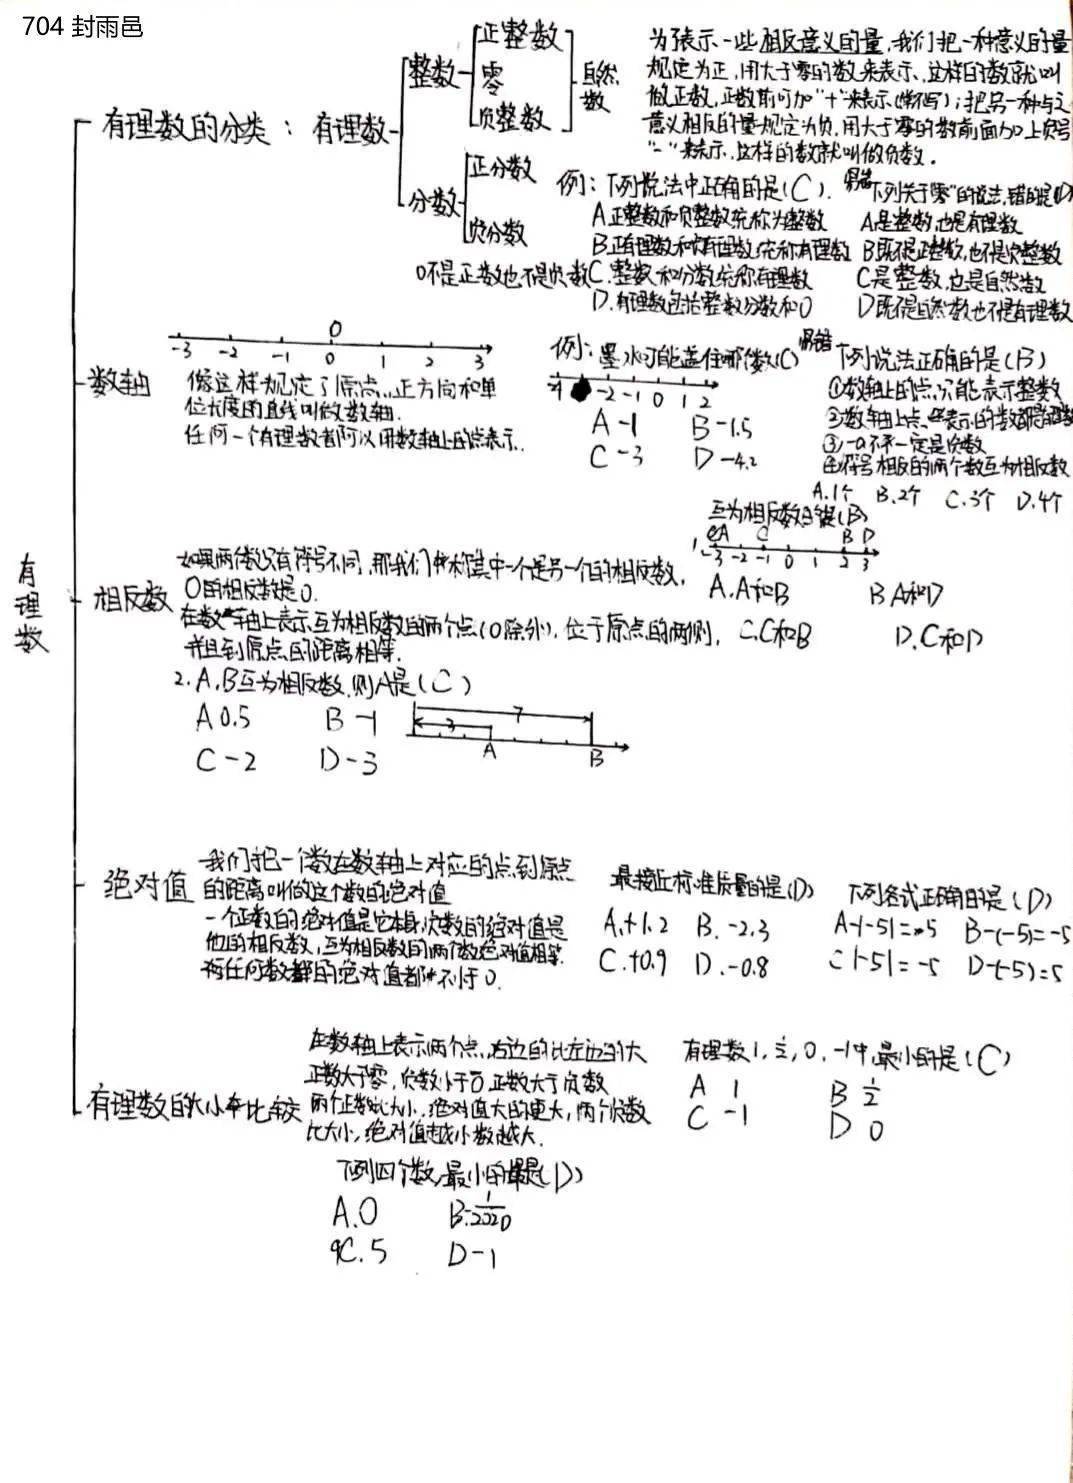 704 封雨邑
有理数
有理数的分类：有理数
整数
正整数
零
负整数
自然数
分数
正分数
负分数
0不是正数也不是负数
为了表示一些相反意义的量,我们把一种意义的量
规定为正,用大于零的数来表示,这样的数就叫
做正数,正数前可加"+"来表示(常不写);把另一种与之
意义相反的量规定为负,用大于零的数前面加上负号
"-"来表示,这样的数就叫做负数.
例：下列说法中正确的是(C).
A正整数和负整数统称为整数
B正有理数和负有理数统称有理数
C.整数和分数统称有理数
D.有理数包括整数分数和0
易错
下列关于"零"的说法,错的是(D)
A是整数,也是有理数
B既不是正整数,也不是负整数
C是整数,也是自然数
D既不是自然数也不是有理数
数轴
0
-3 -2 -1 0 1 2 3
像这样规定了原点,正方向和单
位长度的直线叫做数轴.
任何一个有理数都可以用数轴上的点表示.
例：墨水可能盖住哪个数(C)
-4 -2 -1 0 1 2
A -1 B -1.5
C -3 D -4.2
易错
下列说法正确的是(B)
①数轴上的点只能表示整数
③-a不一定是负数
④符号相反的两个数互为相反数
A.1个 B.2个 C.3个 D.4个
相反数
如果两个数只有符号不同,那我们称其中一个是另一个的相反数,
0的相反数是0.
在数轴上表示互为相反数的两个点(0除外),位于原点的两侧,
并且到原点的距离相等.
互为相反数的是(B)
A C B D
-3 -2 -1 0 1 2 3
A.A和B B A和D
C.C和B D.C和D
2.A,B互为相反数,则A是(C)
A 0.5 B -1
C -2 D -3
7
3
A B
绝对值
我们把一个数在数轴上对应的点到原点
的距离叫做这个数的绝对值
一个正数的绝对值是它本身,负数的绝对值是
他的相反数,互为相反数的两个数绝对值相等.
任何数的绝对值都不小于0.
最接近标准质量的是(D)
A.+1.2 B.-2.3
C.+0.9 D.-0.8
下列各式正确的是(D)
A-|-5|=5 B-(-5)=-5
C|-5|=-5 D-(-5)=5
有理数的大小比较
在数轴上表示两个点,右边的比左边的大
正数大于零,负数小于0,正数大于负数
两个正数比大小,绝对值大的更大,两个负数
比大小,绝对值越小数越大.
有理数1,½,0,-1中,最小的是(C)
A 1 B ½
C -1 D 0
下列四个数,最小的是(D)
A.0 B.-1/2020
C.5 D -1